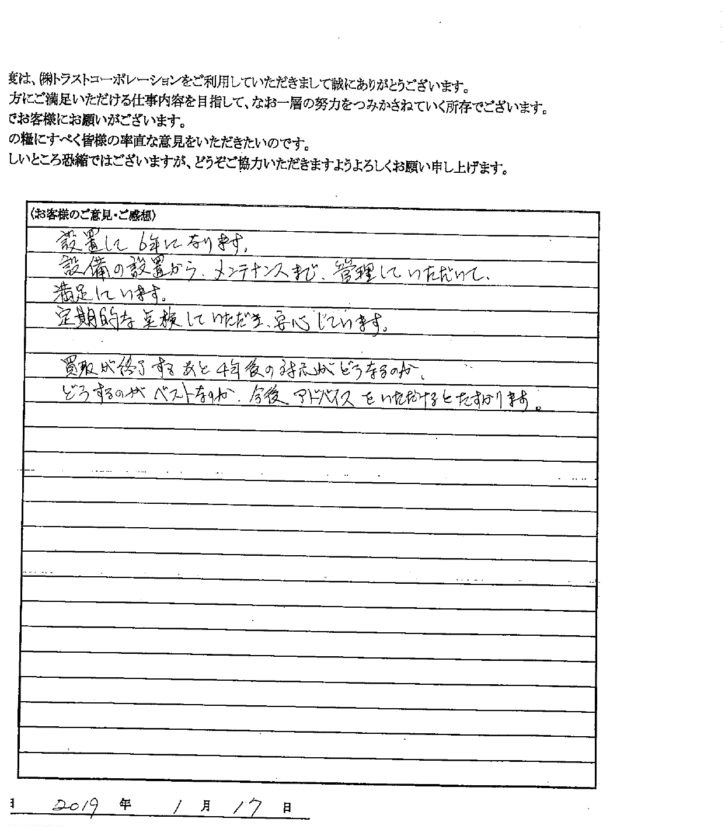 度は、㈱トラストコーポレーションをご利用していただきまして誠にありがとうございます。
方にご満足いただける仕事内容を目指して、なお一層の努力をつみかさねていく所存でございます。
でお客様にお願いがございます。
の糧にすべく皆様の率直な意見をいただきたいのです。
しいところ恐縮ではございますが、どうぞご協力いただきますようよろしくお願い申し上げます。
〈お客様のご意見・ご感想〉
設置して6年になります。
設備の設置から、メンテナンスまで、管理していただいて、
満足しています。
定期的な点検していただき、安心しています。
買取が終了するあと4年後の対応がどうなるのか、
どうするのがベストなのか、今後、アドバイスをいただけるとたすかります。
日 2019 年 1 月 17 日